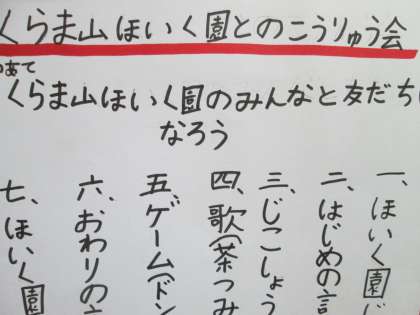 くらま山ほいく園とのこうりゅう会
めあて
くらま山ほいく園のみんなと友だちに
なろう
一、ほいく園じ
二、はじめの言
三、じこしょう
四、歌(茶つみ
五、ゲーム(ドン
六、おわりの言
七、ほいく園